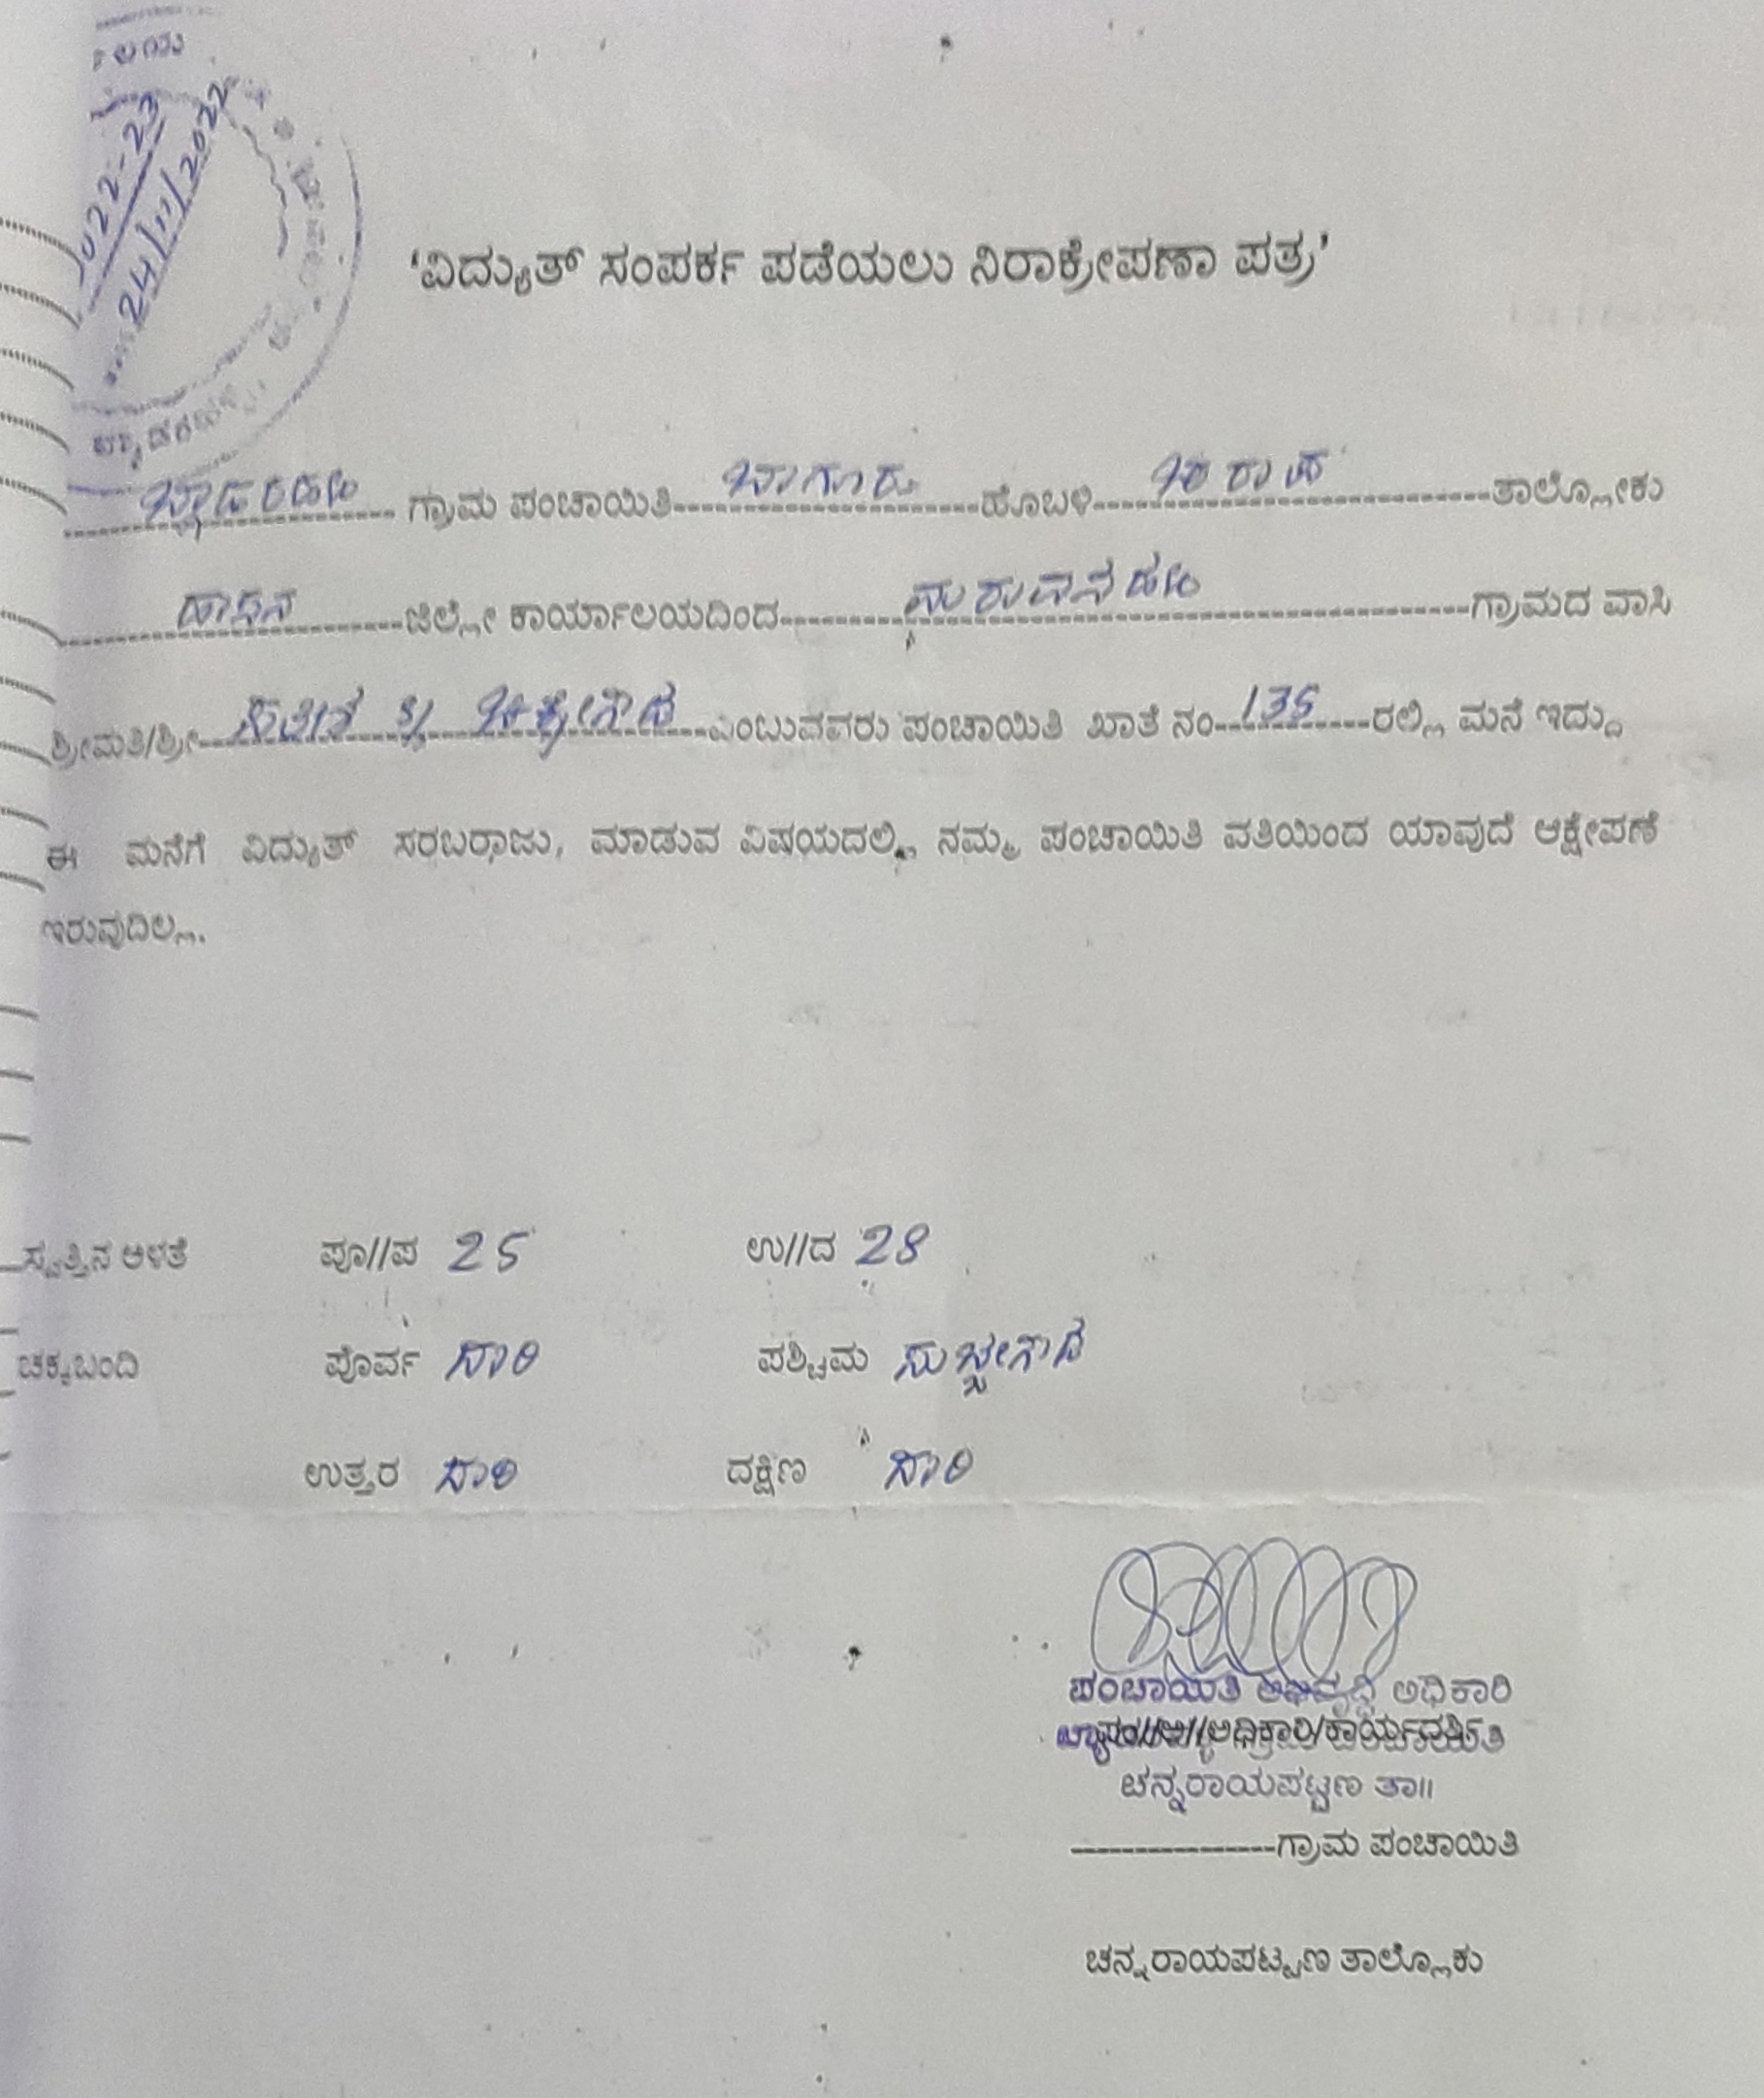 2022-23
24/11/2022
'ವಿದ್ಯುತ್ ಸಂಪರ್ಕ ಪಡೆಯಲು ನಿರಾಕ್ಷೇಪಣಾ ಪತ್ರ'
ಬ್ಯಾಡರಹಳ್ಳಿ ಗ್ರಾಮ ಪಂಚಾಯಿತಿ ಬಾಗೂರು ಹೊಬಳಿ ಚ ರಾ ಪ ತಾಲ್ಲೋಕು
ಹಾಸನ ಜಿಲ್ಲೇ ಕಾರ್ಯಾಲಯದಿಂದ ಗ್ರಾಮದ ವಾಸಿ
ಶ್ರೀಮತಿ/ಶ್ರೀ ಎಂಬುವವರು ಪಂಚಾಯಿತಿ ಖಾತೆ ನಂ 135 ರಲ್ಲಿ ಮನೆ ಇದ್ದು
ಈ ಮನೆಗೆ ವಿದ್ಯುತ್ ಸರಬರಾಜು, ಮಾಡುವ ವಿಷಯದಲ್ಲಿ ನಮ್ಮ ಪಂಚಾಯಿತಿ ವತಿಯಿಂದ ಯಾವುದೆ ಆಕ್ಷೇಪಣೆ
ಇರುವುದಿಲ್ಲ.
ಸ್ವತ್ತಿನ ಅಳತೆ ಪೂ//ಪ 25 ಉ//ದ 28
ಚಕ್ಕಬಂದಿ ಪೊರ್ವ ಗಾಲಿ ಪಶ್ಚಿಮ ಸುಬ್ಬೇಗೌಡ
ಉತ್ತರ ಗಾಲಿ ದಕ್ಷಿಣ ಗಾಲಿ
ಪಂಚಾಯಿತಿ ಅಭಿವೃದ್ಧಿ ಅಧಿಕಾರಿ
ಪಂ//ಅ//ಅಧಿಕಾರಿ/ಕಾರ್ಯದರ್ಶಿ
ಚನ್ನರಾಯಪಟ್ಟಣ ತಾ||
ಗ್ರಾಮ ಪಂಚಾಯಿತಿ
ಚನ್ನರಾಯಪಟ್ಟಣ ತಾಲ್ಲೊಕು